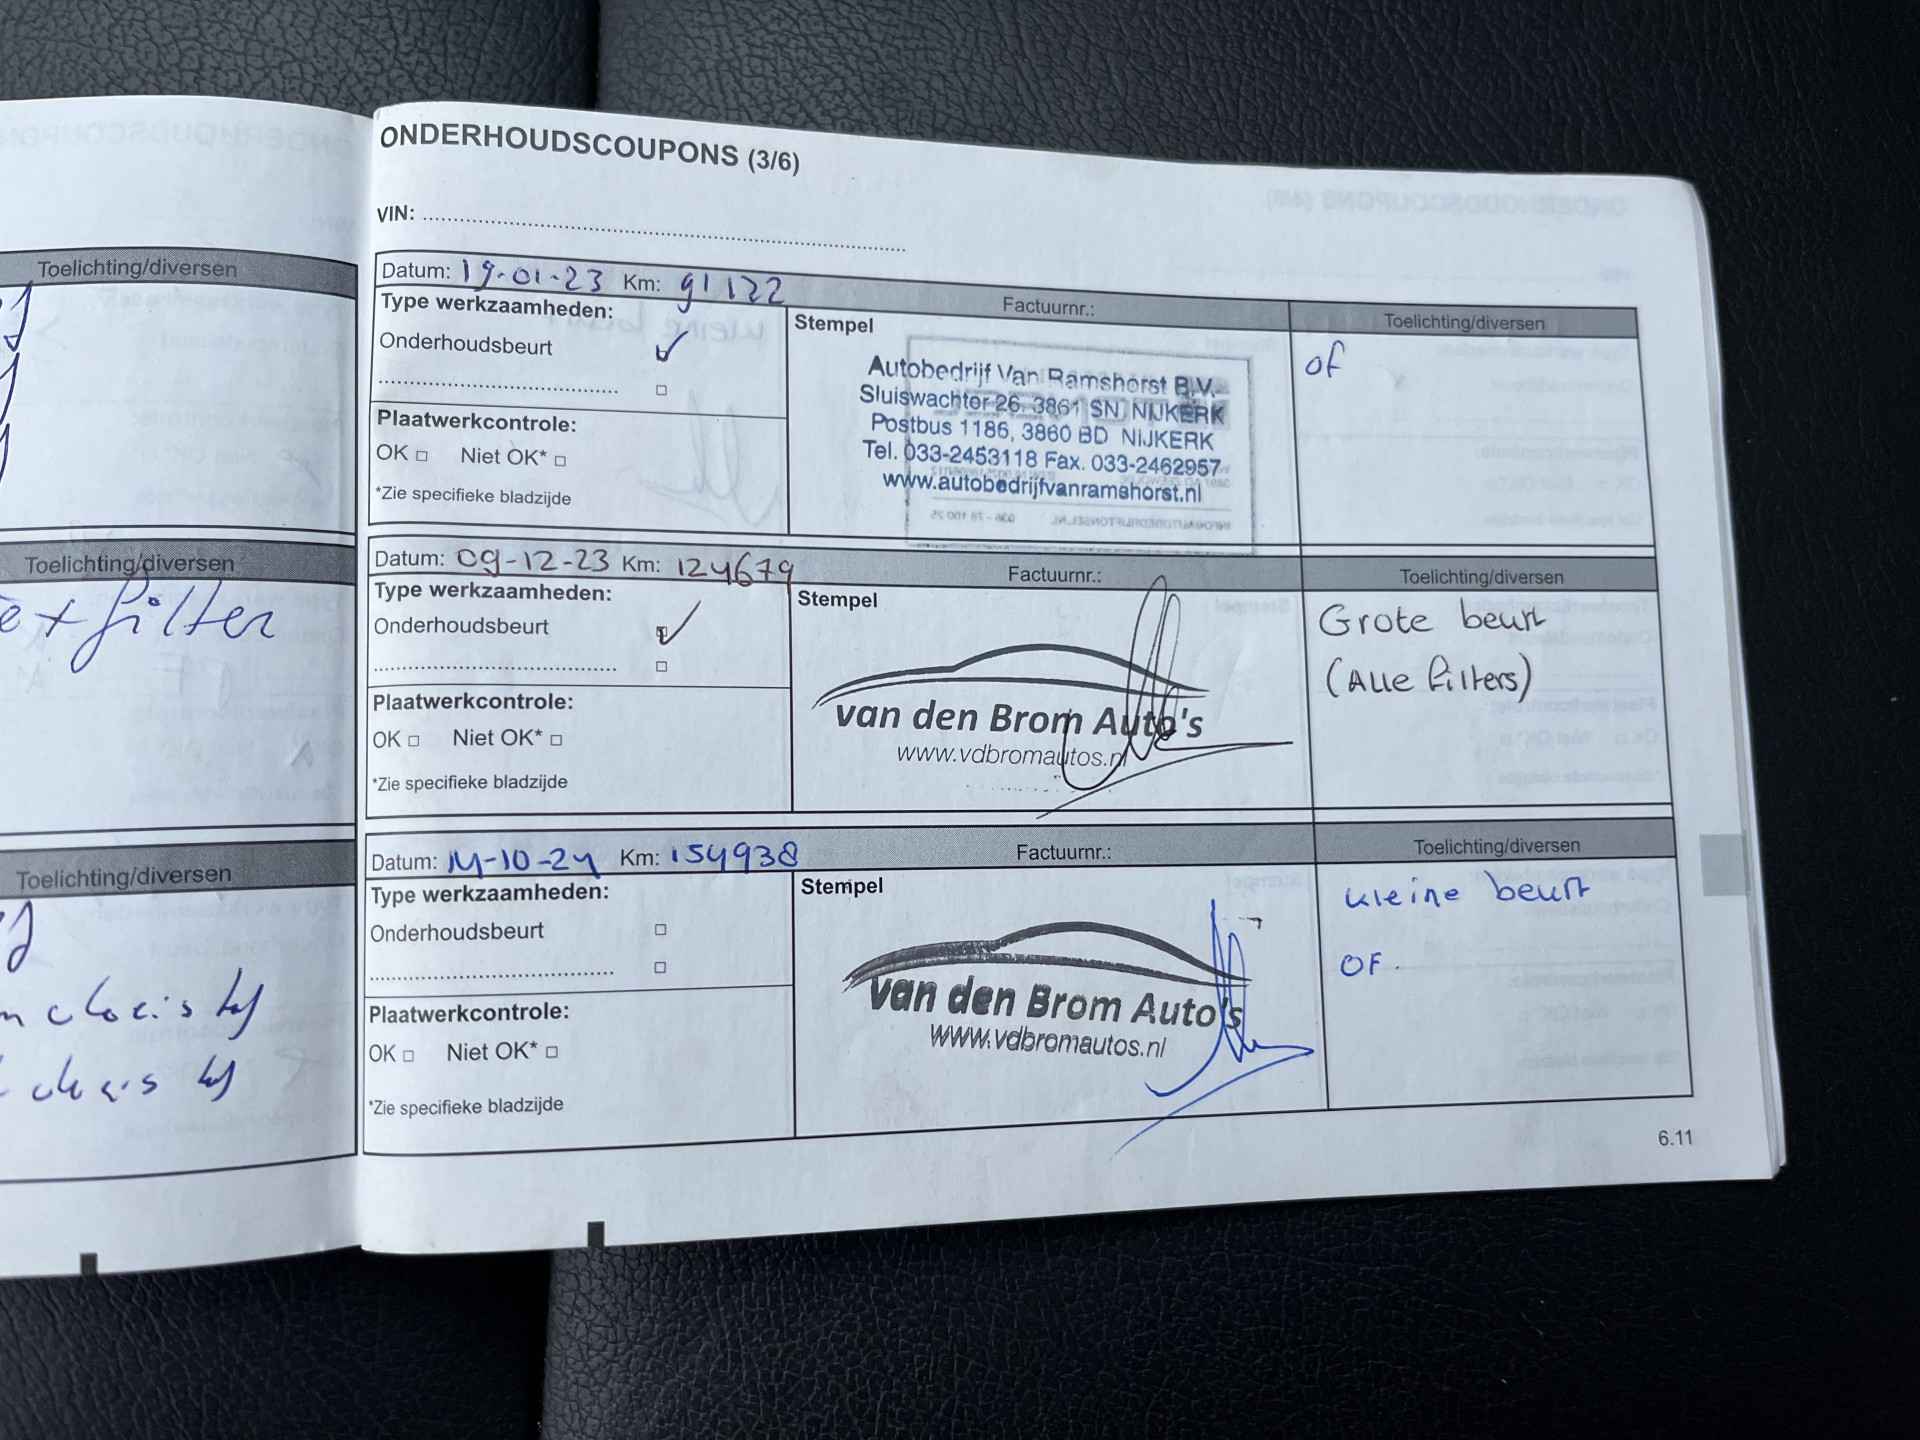 Toelichting/diversen
Toelichting/diversen
filter
Toelichting/diversen
ONDERHOUDSCOUPONS (3/6)
VIN:
Datum: 19-01-23 Km: 91122
Factuurnr.:
Toelichting/diversen
Type werkzaamheden:
Onderhoudsbeurt
Plaatwerkcontrole:
OK Niet OK*
*Zie specifieke bladzijde
Stempel
Autobedrijf Van Ramshorst B.V.
Sluiswachter 26, 3861 SN NIJKERK
Postbus 1186, 3860 BD NIJKERK
Tel. 033-2453118 Fax. 033-2462957
www.autobedrijfvanramshorst.nl
of
Datum: 09-12-23 Km: 124679
Factuurnr.:
Toelichting/diversen
Type werkzaamheden:
Onderhoudsbeurt
Plaatwerkcontrole:
OK Niet OK*
*Zie specifieke bladzijde
Stempel
van den Brom Auto's
www.vdbromautos.nl
Grote beurt
(Alle filters)
Datum: 14-10-24 Km: 154938
Factuurnr.:
Toelichting/diversen
Type werkzaamheden:
Onderhoudsbeurt
Plaatwerkcontrole:
OK Niet OK*
*Zie specifieke bladzijde
Stempel
van den Brom Auto's
www.vdbromautos.nl
kleine beurt
OF
6.11